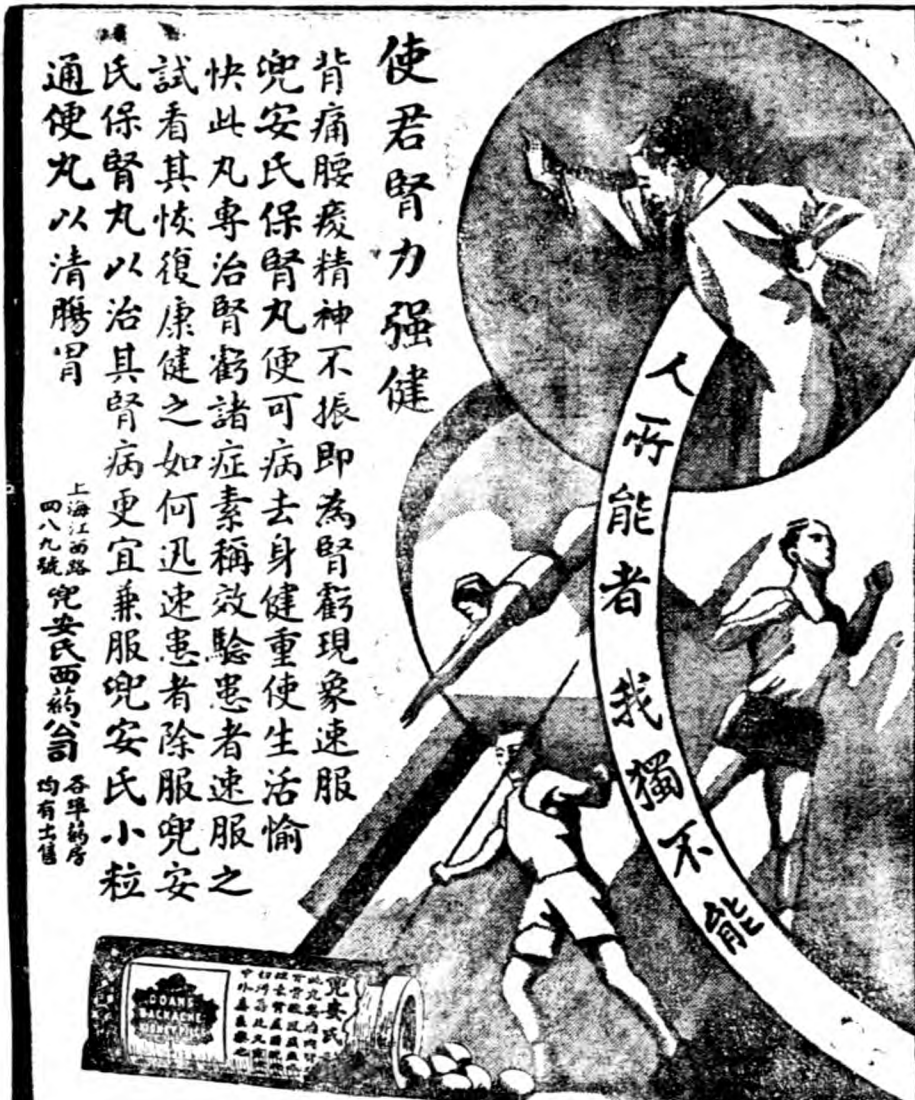 使君腎力强健
背痛腰痠精神不振即為腎虧現象速服
兜安氏保腎丸便可病去身健重使生活愉
快此丸專治腎虧諸症素稱效驗患者速服之
試看其恢復康健之如何迅速患者除服兜安
氏保腎丸以治其腎病更宜兼服兜安氏小粒
通便丸以清腸胃
上海江西路
四八九號
兜安氏西藥公司
各埠藥房
均有出售
人所能者我獨不能
DOANS
BACKACHE
KIDNEY PILLS
兜安氏